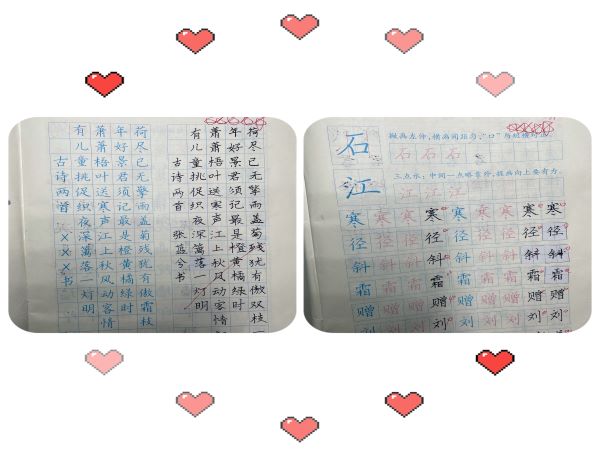 荷尽已无擎雨盖菊残犹有傲双枝
年好景君须记最是橙黄橘绿时
萧梧叶送寒声江上秋风动客情
有儿童挑促织夜深篱落一灯明
古诗两首 张蓝兮书
荷尽已无擎雨盖菊残犹有傲霜枝
年好景君须记最是橙黄橘绿时
萧梧叶送寒声江上秋风动客情
有儿童挑促织夜深篱落一灯明
古诗两首 ×××书
石
撇画左伸,横画间距匀,“口”与短横对正
石石石
江
三点水:中间一点略靠外,提画向上要有力。
江江江
寒寒寒寒寒寒寒寒寒
径径径径径径径径径
斜斜斜斜斜斜斜斜斜
霜霜霜霜霜霜霜霜霜
赠赠赠赠赠赠赠赠赠
刘刘刘刘刘刘刘刘刘